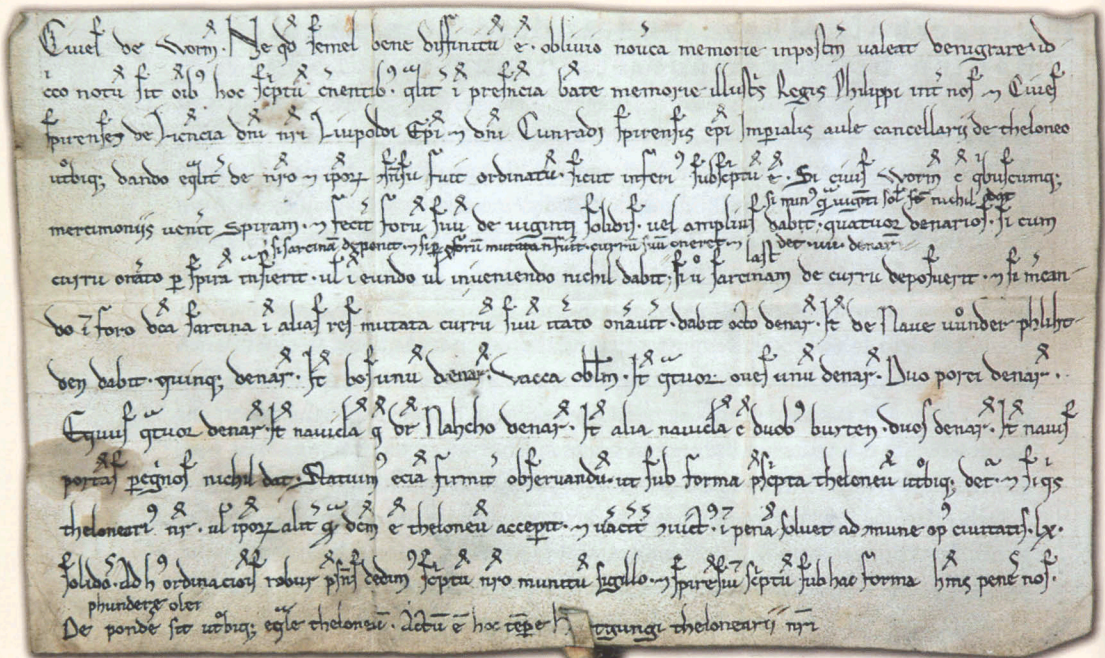 Ciueſ de Worm̄. Ne qd̊ ſemel bene diffinitū ē. oblivio noūca memorie inpoſtm̄ valeat denigrare. id
cco notū ſit oib; hoc ſc̄ptū c̄nentib;. qlit̄ ī preſencia bate memorie illuſts̄ Regis Philippi int̄ noſ ⁊ Ciueſ
ſpirenſeſ de Licēncia dn̄i nr̄i Liupoldi Ep̄i ⁊ dn̄i Cunradi ſpirenſis ep̄i Imp̄ialis aule cancellarii de theloneo
ut̊biq; dando eqlit̄ de nr̄o ⁊ ipoꝝ ſnſu fuit ordinatū. ſicut inferi᾽ ſubſc̄ptū ē. Si ciuiſ Worm̄ c̄ qbuſcumq;
ſi min᾽ qͣ viginti ſol̄ nichil
mercimoniis venit̄ Spiram. ⁊ fecit forū ſuū de viginti ſolidiſ. vel ampliuſ dabit. quatuor denarioſ. ſi cum
ſi ſarcinā deponit. ⁊ forū mutata n̄ fuit. currū ſuū oneret. ⁊ det. iiii. denar
curru on̄ato ꝑ ſpirā tnſierit. ul̄ ī eundo ul̄ inveniendo nichil dabit. ſi ū ſarcinam de curru depoſuerit. ⁊ ſi m̄can
do ī foro dc̄a ſarcina ī aliaſ reſ mutata currū ſuū it̄ato on̄auit̄. dabit octo denar̄. It̄ de Naue vůnder phliht
den dabit. quinq; denar̄. It̄ boſ unū denar̄. vacca obl̄m. It̄ qtuor oueſ unū denar̄. Duo porci denar̄.
Equuſ qͣtuor denar̄. It̄ nauicl̄a q̄ dr̄ Nahcho denar̄. It̄ alia nauicl̄a c̄ duob᾽ burten. duoſ denar̄. It̄ nauiſ
portāſ peg̓noſ nichil dat. Statuim᾽ eciā firmit̄ obſeruandū. ut ſub forma pſc̄pta theloneū ut̊biq; det̄. ⁊ ſi qs
thelonearī᾽ nr̄. ul̄ ipoꝝ alit̄ qͣ dc̄m ē theloneū accep̄it. ī pena ſoluet ad mune op᾽ ciuitatiſ. lx.
ſolidoſ. Ad h᾽ ordinacioīſ robur pſn̄ſ cedim᾽ ſc̄ptū nr̄o munitū ſigillo. ⁊ ſpirēſiū ſc̄ptū ſub hac forma hm̄᾽ peneſ noſ.
phundere olei
De pondere ſit ut̊biq; eqle theloneū. Actū ē hoc tēpe h tgungi thelonearii nr̄i